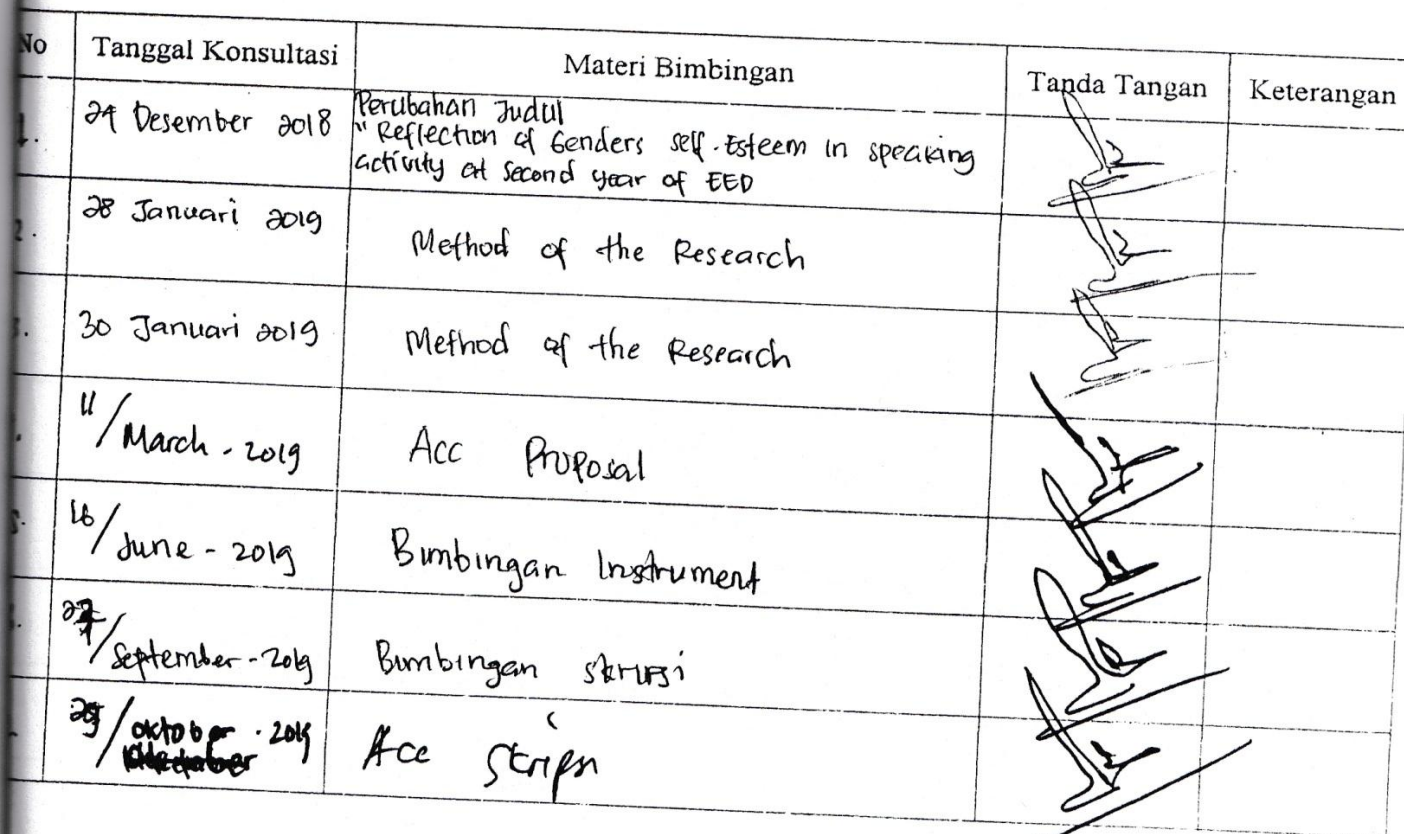 No Tanggal Konsultasi Materi Bimbingan Tanda Tangan Keterangan
1. 24 Desember 2018 Perubahan Judul
"Reflection of Genders self-Esteem in speaking
activity at second year of EED
2. 28 Januari 2019 Method of the Research
3. 30 Januari 2019 Method of the Research
11/March - 2019 Acc Proposal
16/June - 2019 Bimbingan Instrument
/September - 2019 Bimbingan skripsi
/oktober - 2019 Acc Skripsi